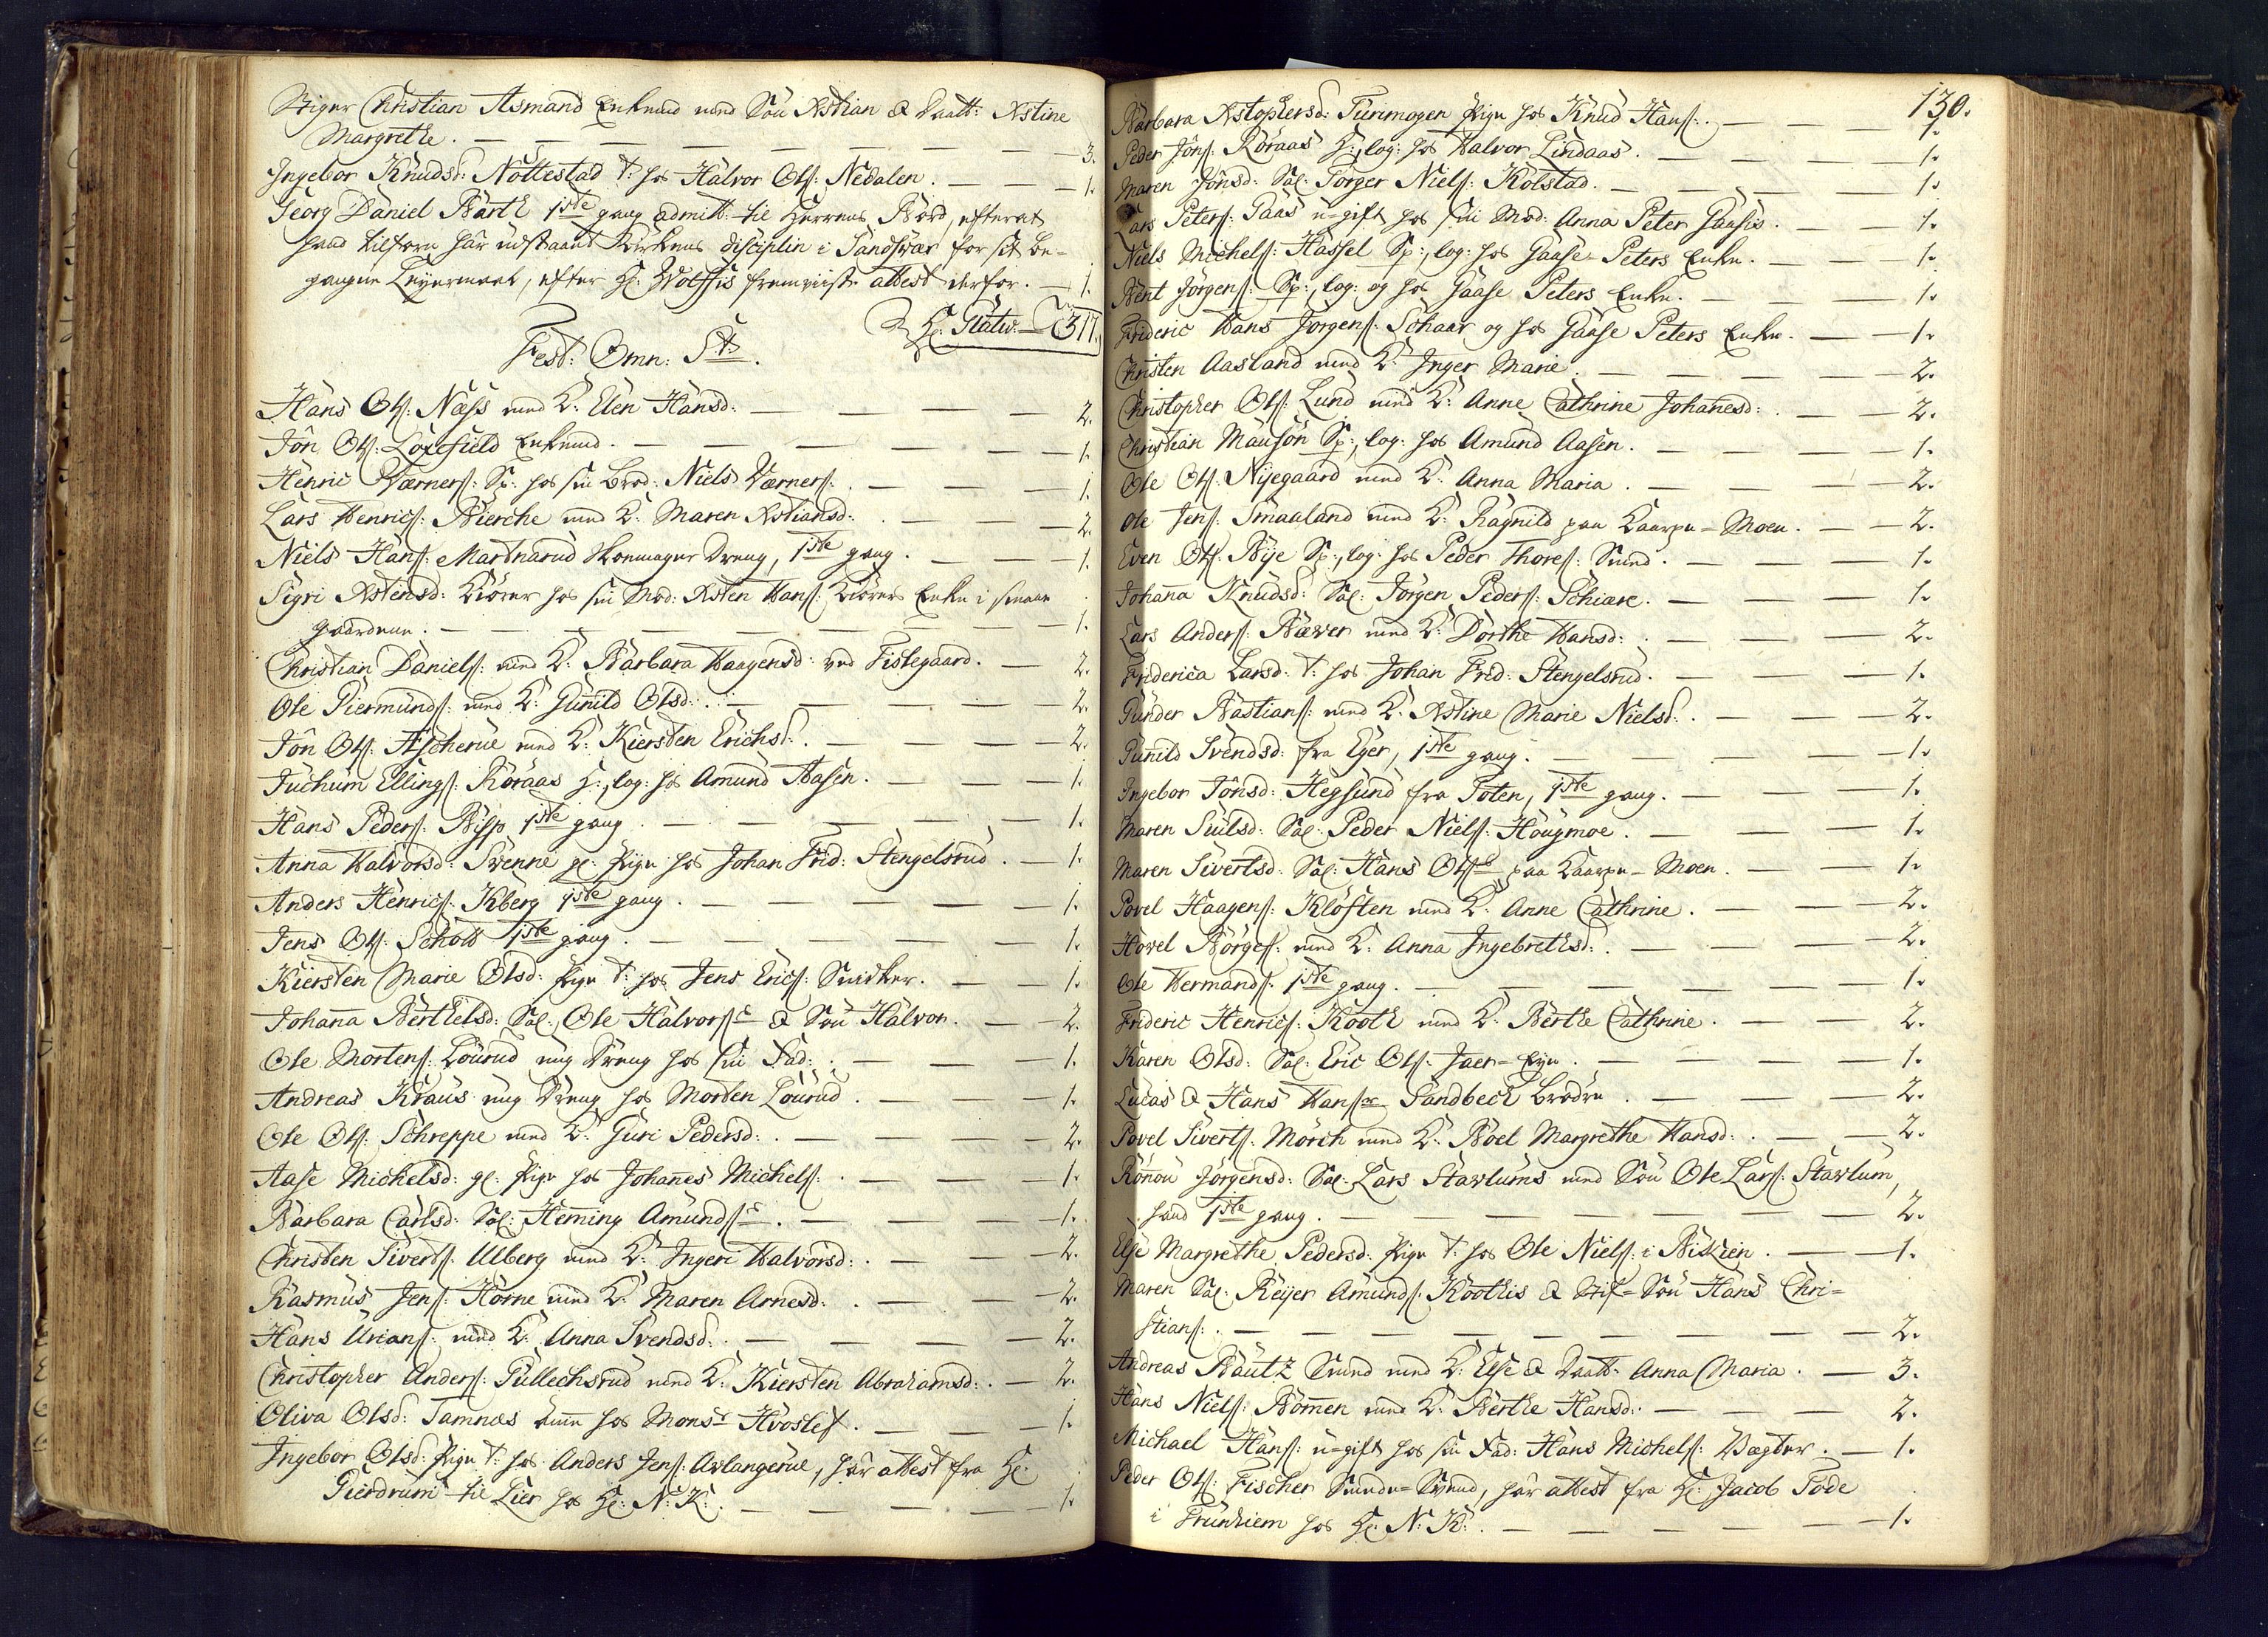 Stiger Christian Asmand Enkemd med Søn Xstian & Daatt: Xstine
Margrethe. — 3.
Ingebor Knudsd: Nöttestad t: hos Halvor Ols: Nedalen. — 1.
Georg Daniel Barth 1ste gang admitt: til Herrens Bord, efterat
hand tilforn har udstaaet Kirkens disciplin i Sandsvær for sit be-
gangne Leyermaal, efter Hr: Wolffis fremviiste attest derfor. — 1.
Hr: Statw: 311.
Fest: Omn: St:
Hans Ols: Næss med K: Elen Hansd: — 2.
Jön Ols: Löxefield Enkemd. — 1.
Henric Værners: Sp: hos sin Brod: Niels Værners: — 1.
Lars Henrics: Bierche med K: Maren Xstiansd: — 2.
Niels Hans: Martnarud Skomager Dreng, 1ste gang. — 1.
Sigri Xstensd: Kiörer hos sin Mod: Xsten Hans: Kiörers Enke i smaae
gaardene. — 1.
Christian Daniels: med K: Barbara Haagensd: ved Fistegaard. — 2.
Ole Piermunds: med K: Gunild Olsd: — 2.
Jön Ols: Ascherue med K: Kiersten Erichsd: — 2.
Juchum Ellings: Röraas H:, log: hos Amund Aasen. — 1.
Hans Peders: Bisp 1ste gang — 1.
Anna Halvorsd: Svenne gl: Pige hos Johan Frid: Stengelsrud. — 1.
Anders Henrics: Kberg 1ste gang. — 1.
Jens Ols: Schött 1ste gang. — 1.
Kiersten Marie Olsd: Pige t: hos Jens Erics: Snidker. — 1.
Johanna Berthelsd: Sal: Ole Halvorss & Søn Halvor. — 2.
Ole Mortens: Lourud ung Dreng hos sin Fad: — 1.
Andreas Kraus ung Dreng hos Morten Lourud. — 1.
Ole Ols: Schreppe med K: Guri Pedersd: — 2.
Aase Michelsd: gl: Pige hos Johanes Michels: — 1.
Barbara Carlsd: Sal: Heming Amundss. — 1.
Christen Siverts: Ulberg med K: Ingeri Halvorsd: — 2.
Rasmus Jens: Horne med K: Maren Arnesd: — 2.
Hans Urians: med K: Anna Svendsd: — 2.
Christopher Anders: Gullechsrud med K: Kiersten Abrahamsd: — 2.
Oliva Olsd: Tamnæs Amme hos Monsr Hvoslef. — 1.
Ingebor Olsd: Pige t: hos Anders Jens: Aslangerue, har attest fra Hr:
Gierdrum til Lier hos Hr: N: K: — 1.
130.
Barbara Xstophersd: Turimogen Pige hos Knud Hans: — 1.
Peder Jöns: Röraas H:, log: hos Halvor Lindaas. — 1.
Maren Jönsd: Sal: Torger Niels: Kolstad. — 1.
Lars Peters: Gaas u-gift hos sin Mod: Anna Peter Gaasis. — 1.
Niels Michels: Hassel Sp:, log: hos Gaase-Peters Enke. — 1.
Bent Jörgens: Sp:, log: og hos Gaase Peters Enke. — 1.
Frideric Hans Jorgens: Schaar og hos Gaase Peters Enke. — 1.
Christen Aasland med K: Inger Marie. — 2.
Christopher Ols: Lund med K: Anne Cathrine Johanesd: — 2.
Christian Mauson Sp:, log: hos Amund Aasen. — 1.
Ole Ols: Nijegaard med K: Anna Maria. — 2.
Ole Jens: Smaaland med K: Ragnild paa Kaarpe-Moen. — 2.
Even Ols: Bije Sp:, log: hos Peder Thores: Smed. — 1.
Johanna Knudsd: Sal: Jörgen Peders: Schiære. — 1.
Lars Anders: Bæver med K: Dorthe Hansd: — 2.
Friderica Larsd: t: hos Johan Frid: Stengelsrud. — 1.
Gunder Bastians: med K: Xstine Marie Nielsd: — 2.
Gunild Svendsd: fra Eger, 1ste gang. — 1.
Ingebor Jönsd: Hegsund fra Toten, 1ste gang. — 1.
Maren Siulsd: Sal: Peder Niels: Hougmoe. — 1.
Maren Sivertsd: Sal: Hans Olss paa Kaarpe-Moen. — 1.
Povel Haagens: Klöften med K: Anne Cathrine. — 2.
Hovel Börges: med K: Anna Ingebrethsd: — 2.
Ole Hermands: 1ste gang. — 1.
Frideric Henrics: Kooth med K: Berthe Cathrine. — 2.
Karen Olsd: Sal: Eric Ols: Jaer-Eye. — 1.
Lucas & Hans Hansør Sandbech Brødre. — 2.
Povel Siverts: Mörch med K: Boel Margrethe Hansd: — 2.
Rönou Jörgensd: Sal: Lars Stavlums med Søn Ole Lars: Stavlum,
hand 1ste gang. — 2.
Else Margrethe Pedersd: Pige t: hos Ole Niels: i Bikien. — 1.
Maren Sal: Reijer Amunds: Koothis & Stif-Søn Hans Chri-
stians: — 2.
Andreas Bautz Smed med K: Else & Daatt: Anna Maria. — 3.
Hans Niels: Bömen med K: Berthe Hansd: — 2.
Michael Hans: u-gift hos sin Fad: Hans Michels: Vægter. — 1.
Peder Ols: Fischer Smede-Svend, har attest fra Hr: Jacob Tode
i Trunhiem hos Hr: N: K: — 1.